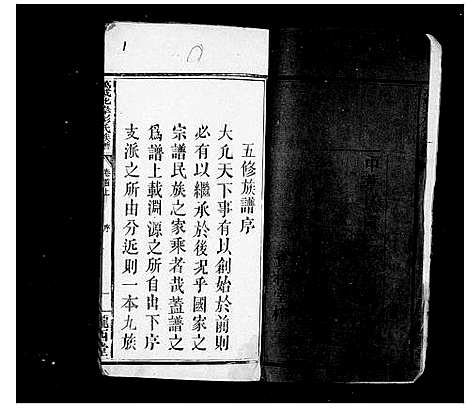 五修族譜序
大凡天下事有以創始於前則
必有以繼承於後況乎國家之
宗譜民族之家乘者哉蓋譜之
爲譜上載淵源之所自由下序
支派之所由分近則一本九族
卷首上
序
一
隴西堂
1